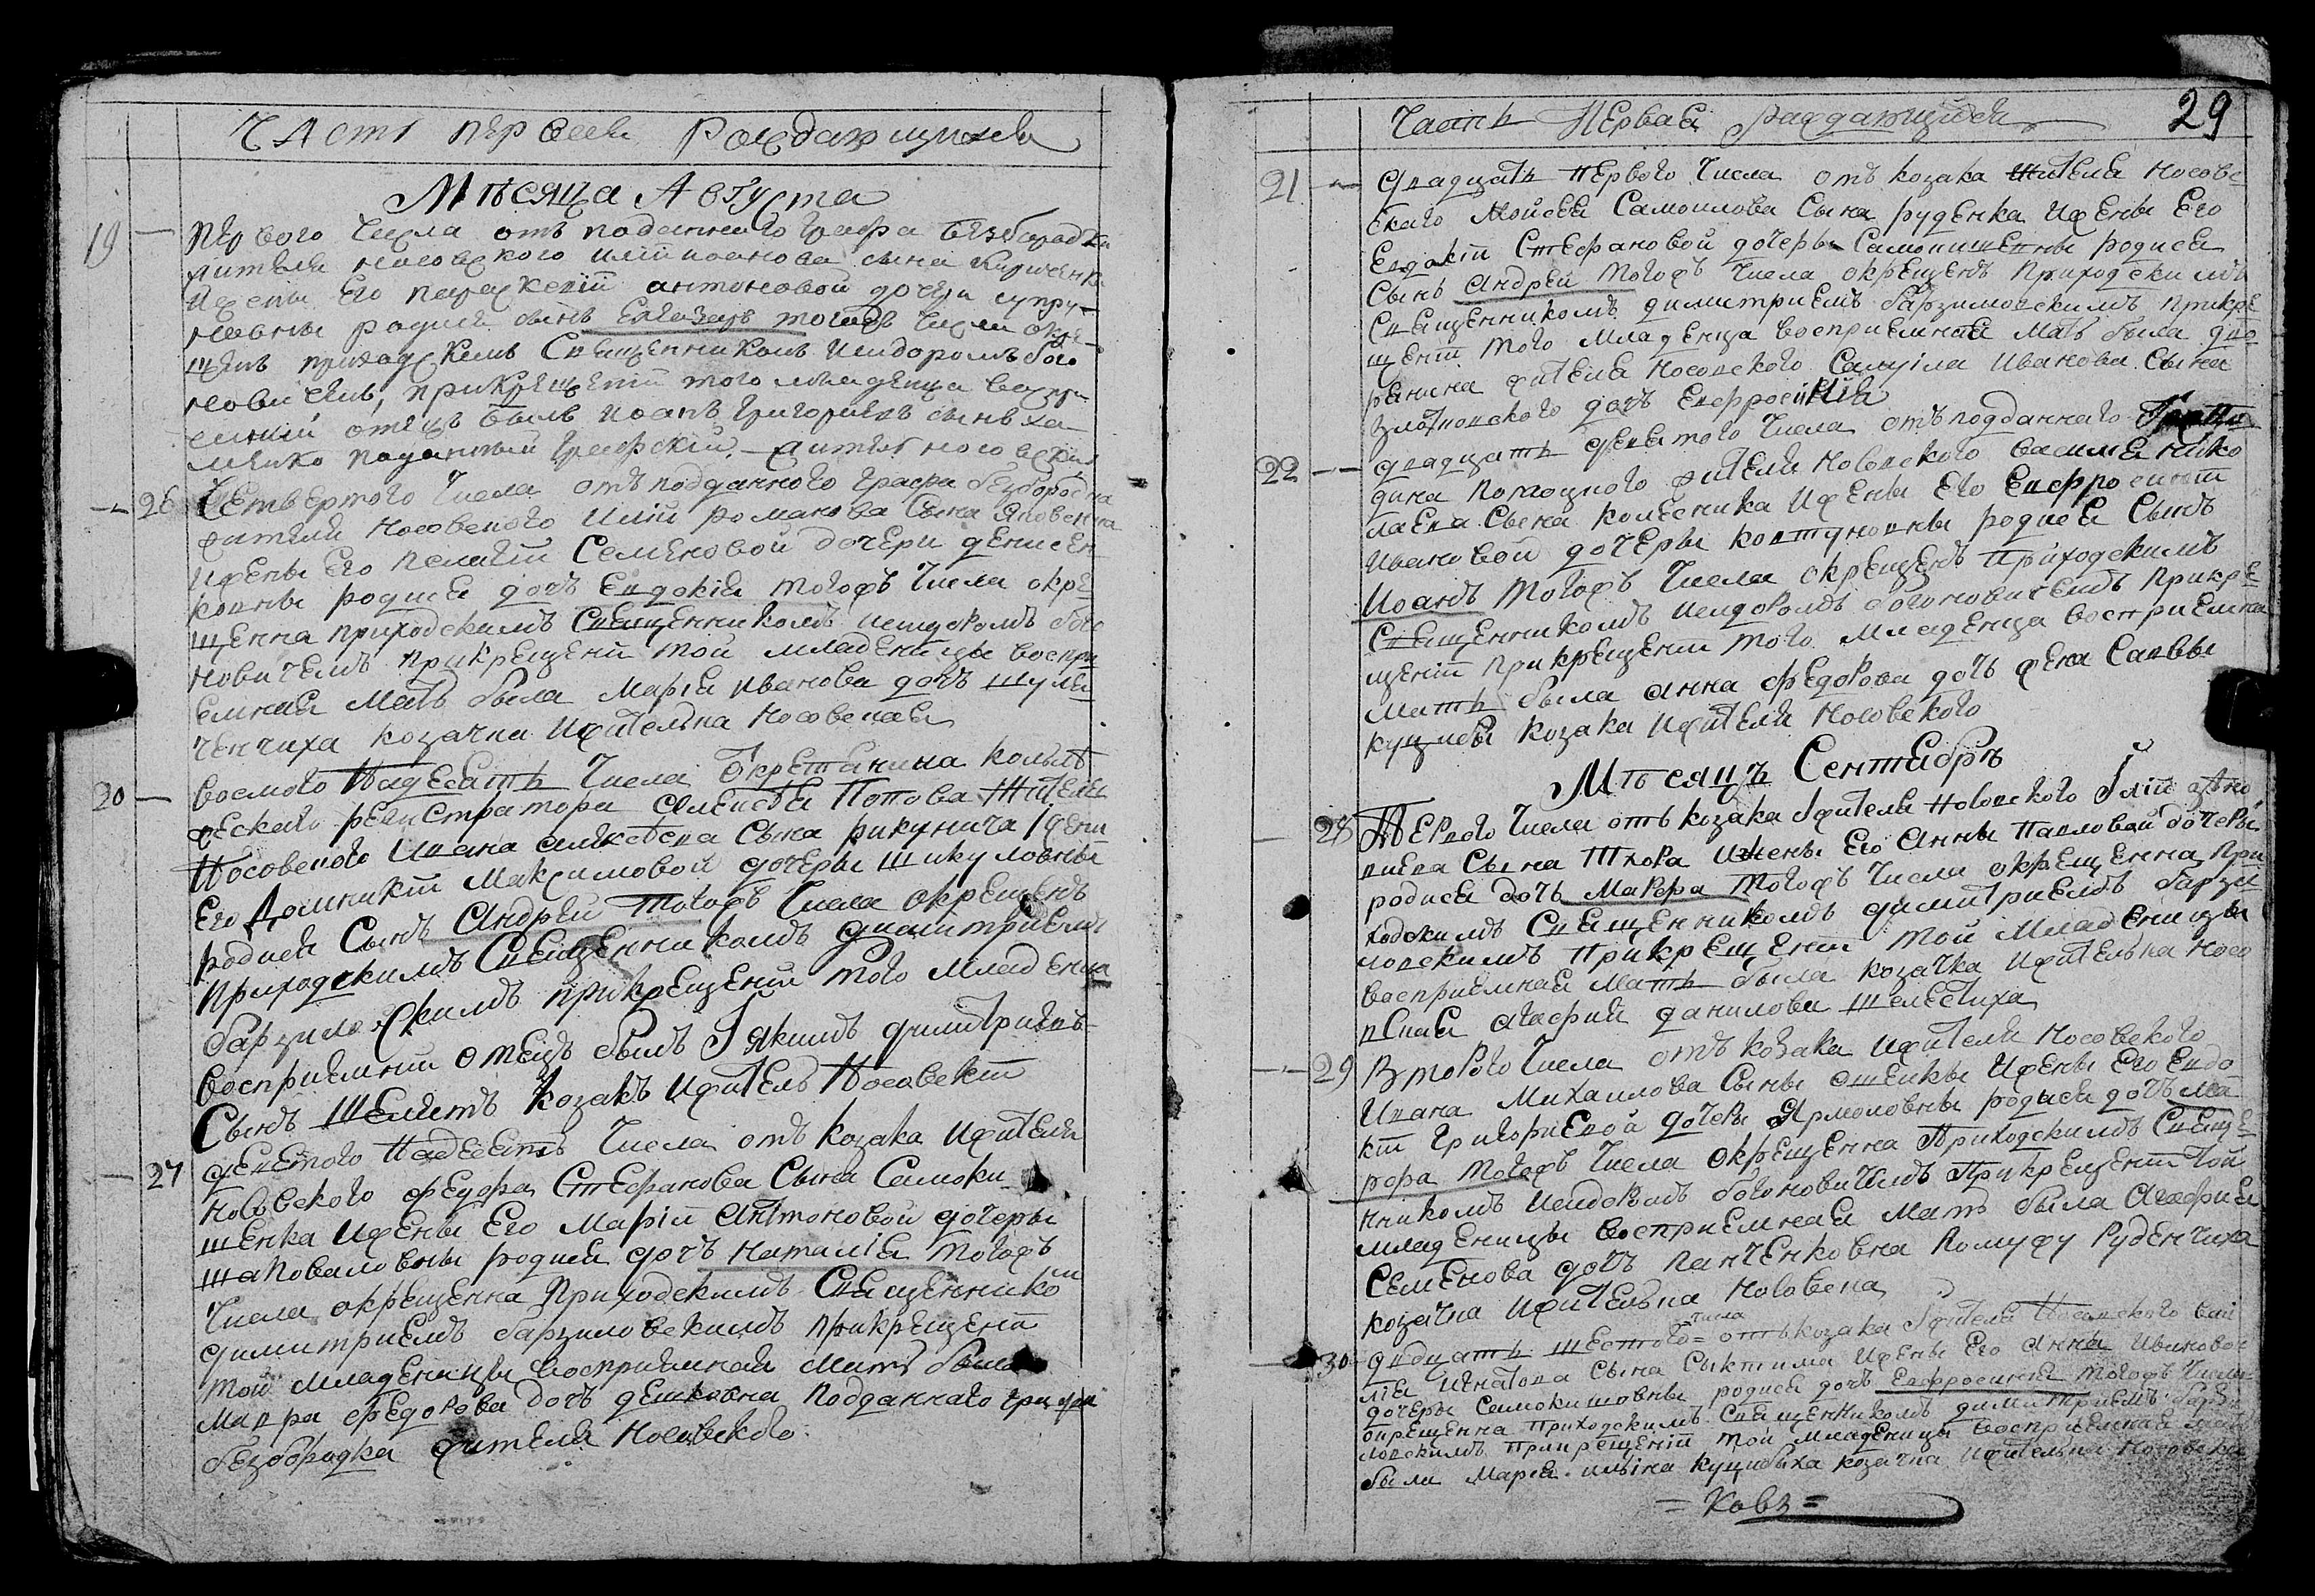 Часть первая Раждающихся
Мѣсяца Августа
19 Первого Числа отъ подданного графа безбородки
жителя носовского илїи иоанова сына кириченка
ижены Его параскевїи антоновой дочери супру-
новны родися сынъ Елеазаръ тогожъ числа окре-
щенъ приходскимъ Священникомъ исидоромъ бого
новичемъ, прикрещенїи того младенца воспри
емный отецъ былъ иоанъ григориевъ сынъ
подданный графский житель носовский
26 Четвертого Числа отъ подданного графа безбородка
жителя Носовского Илїи романова Сына Яковенка
ижены Его пелагїи Семеновой дочери денисен
ковны родися дочъ Евдокїя тогожъ Числа окре
щенна приходскимъ Священникомъ исидоромъ бого
новичемъ прикрещенїи той младеницы воспри
емная Мать была Марїя иванова дочъ шуля
ченчиха козачка ижителька Носовская
20 восмого Надесять Числа Окретанина колъле
жеского регистратора Алексѣя Попова Жителя
Носовского Ивана Сына рикунича iжени
Его Домникїи Максимовой дочеры шикуловны
родися Сынъ Андрей Тогожъ Числа окрещенъ
приходскимъ Священникомъ димитриемъ
барзиловскимъ прикрещенїи того Младенца
восприемнїй отецъ былъ Iякимъ димитриевъ
Сынъ Шелестъ козакъ ижитель Носовскїй
27 девятого Надесять Числа отъ козака ижителя
Носовского федора Стефанова Сына Самоки
шенка ижены Его Марїи Антоновой дочеры
шаповаловны родися дочъ Наталїя Тогожъ
Числа окрещенна Приходскимъ Священником
димитриемъ барзиловскимъ прикрещенїи
той младеницы восприемная мать была
Мавра федорова дочъ подданнаго графа
безбородка жителя Носовского
Часть Первая Раждающихся 29
21 двадцать Первого Числа отъ козака Жителя Носов-
ского Мойсея Самоилова Сына руденка ижены Его
Евдокїи Стефановой дочеры Самокишевны родися
Сынъ Андрей тогожъ Числа окрещенъ Приходскимъ
Священникомъ димитриемъ барзиловскимъ прикре
щенїи того Младенца восприемная Мать была дво
ранина жителя Носовского Самуїла Иванова Сына
злотовского дочъ Евфросинїя
22 двадцать девятого Числа отъ подданнаго
дина жителя Носовского василия нико
лаева Сына колесника ижены Его Евфросинїи
Ивановой дочеры ковтуновны родися Сынъ
Иоанъ Тогожъ Числа окрещенъ приходскимъ
Священникомъ исидоромъ богоновичемъ Прикре
щенїи прикрещенїи того Младенца восприемна
Мать была Анна федорова дочъ жена Саввы
куцибы козака ижителя Носовского
Мѣсяцъ Сентябръ
28 Первого Числа отъ козака iжителя Носовского Iлїи зѣно
виева Сына Тхора ижены Его Анны Павловой дочеры
родися дочъ Марфа Тогожъ Числа окрещенна при
ходскимъ Священникомъ димитриемъ барзи
ловскимъ прикрещенїи той Младеницы
восприемная Мать была козачка ижителька Носо
вская Агафия данилова Шелестиха
29 Второго Числа отъ козака ижителя Носовского
Ивана Михаилова Сыны ижены Его Евдо
кїи Григориевой дочеры Ярмоловны родися дочъ Ма
рфа тогожъ Числа окрещенна Приходскимъ Священ
никомъ исидоромъ богоновичемъ Прикрещенїи той
младеницы восприемная мать была Агафия
Семенова дочъ панченковна помужу Руденчиха
козачка ижителька Носовска
30 двдцать шестого числа отъ козака iжителя Носовского васи
лїя игнатова Сына ижены Его Анны Ивановой
дочеры Самокишовны родися дочъ Евфросиния тогожъ Числа
окрещенна приходскимъ Священникомъ димитриемъ барзи
ловскимъ прикрещенїй той младеницы восприемная мать
была Мария ильина куцибиха козачка ижителька Носовская